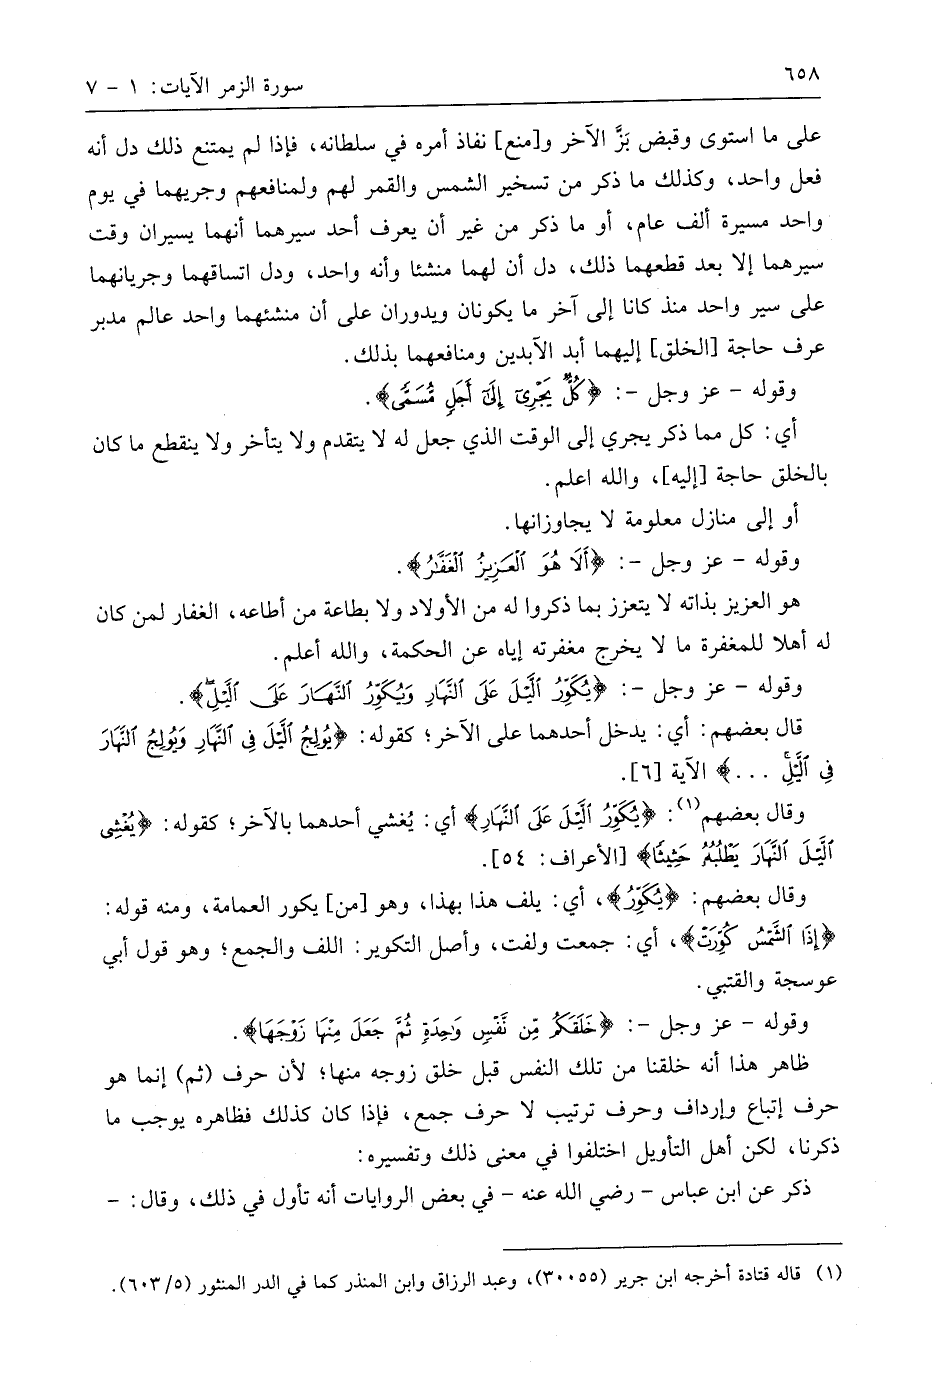 ٦٥٨
سورة الزمر الآيات: ١ - ٧
على ما استوى وقبض بَزَّ الآخر و[منع] نفاذ أمره في سلطانه، فإذا لم يمتنع ذلك دل أنه
فعل واحد، وكذلك ما ذكر من تسخير الشمس والقمر لهم ولمنافعهم وجريهما في يوم
واحد مسيرة ألف عام، أو ما ذكر من غير أن يعرف أحد سيرهما أنهما يسيران وقت
سيرهما إلا بعد قطعهما ذلك، دل أن لهما منشئا وأنه واحد، ودل اتساقهما وجريانهما
على سير واحد منذ كانا إلى آخر ما يكونان ويدوران على أن منشئهما واحد عالم مدبر
عرف حاجة [الخلق] إليهما أبد الآبدين ومنافعهما بذلك.
وقوله - عز وجل -: ﴿كُلٌّ يَجْرِي إِلَىٰٓ أَجَلٍ مُّسَمًّى﴾.
أي: كل مما ذكر يجري إلى الوقت الذي جعل له لا يتقدم ولا يتأخر ولا ينقطع ما كان
بالخلق حاجة [إليه]، والله اعلم.
أو إلى منازل معلومة لا يجاوزانها.
وقوله - عز وجل -: ﴿أَلَا هُوَ ٱلْعَزِيزُ ٱلْغَفَّٰرُ﴾.
هو العزيز بذاته لا يتعزز بما ذكروا له من الأولاد ولا بطاعة من أطاعه، الغفار لمن كان
له أهلا للمغفرة ما لا يخرج مغفرته إياه عن الحكمة، والله أعلم.
وقوله - عز وجل -: ﴿يُكَوِّرُ ٱلَّيْلَ عَلَى ٱلنَّهَارِ وَيُكَوِّرُ ٱلنَّهَارَ عَلَى ٱلَّيْلِ﴾.
قال بعضهم: أي: يدخل أحدهما على الآخر؛ كقوله: ﴿يُولِجُ ٱلَّيْلَ فِى ٱلنَّهَارِ وَيُولِجُ ٱلنَّهَارَ
فِى ٱلَّيْلِ ...﴾ الآية [٦].
وقال بعضهم(١): ﴿يُكَوِّرُ ٱلَّيْلَ عَلَى ٱلنَّهَارِ﴾ أي: يُغشي أحدهما بالآخر؛ كقوله: ﴿يُغْشِى
ٱلَّيْلَ ٱلنَّهَارَ يَطْلُبُهُۥ حَثِيثًا﴾ [الأعراف: ٥٤].
وقال بعضهم: ﴿يُكَوِّرُ﴾، أي: يلف هذا بهذا، وهو [من] يكور العمامة، ومنه قوله:
﴿إِذَا ٱلشَّمْسُ كُوِّرَتْ﴾، أي: جمعت ولفت، وأصل التكوير: اللف والجمع؛ وهو قول أبي
عوسجة والقتبي.
وقوله - عز وجل -: ﴿خَلَقَكُم مِّن نَّفْسٍ وَٰحِدَةٍ ثُمَّ جَعَلَ مِنْهَا زَوْجَهَا﴾.
ظاهر هذا أنه خلقنا من تلك النفس قبل خلق زوجه منها؛ لأن حرف (ثم) إنما هو
حرف إتباع وإرداف وحرف ترتيب لا حرف جمع، فإذا كان كذلك فظاهره يوجب ما
ذكرنا، لكن أهل التأويل اختلفوا في معنى ذلك وتفسيره:
ذكر عن ابن عباس - رضي الله عنه - في بعض الروايات أنه تأول في ذلك، وقال: -
(١) قاله قتادة أخرجه ابن جرير (٣٠٠٥٥)، وعبد الرزاق وابن المنذر كما في الدر المنثور (٦٠٣/٥).